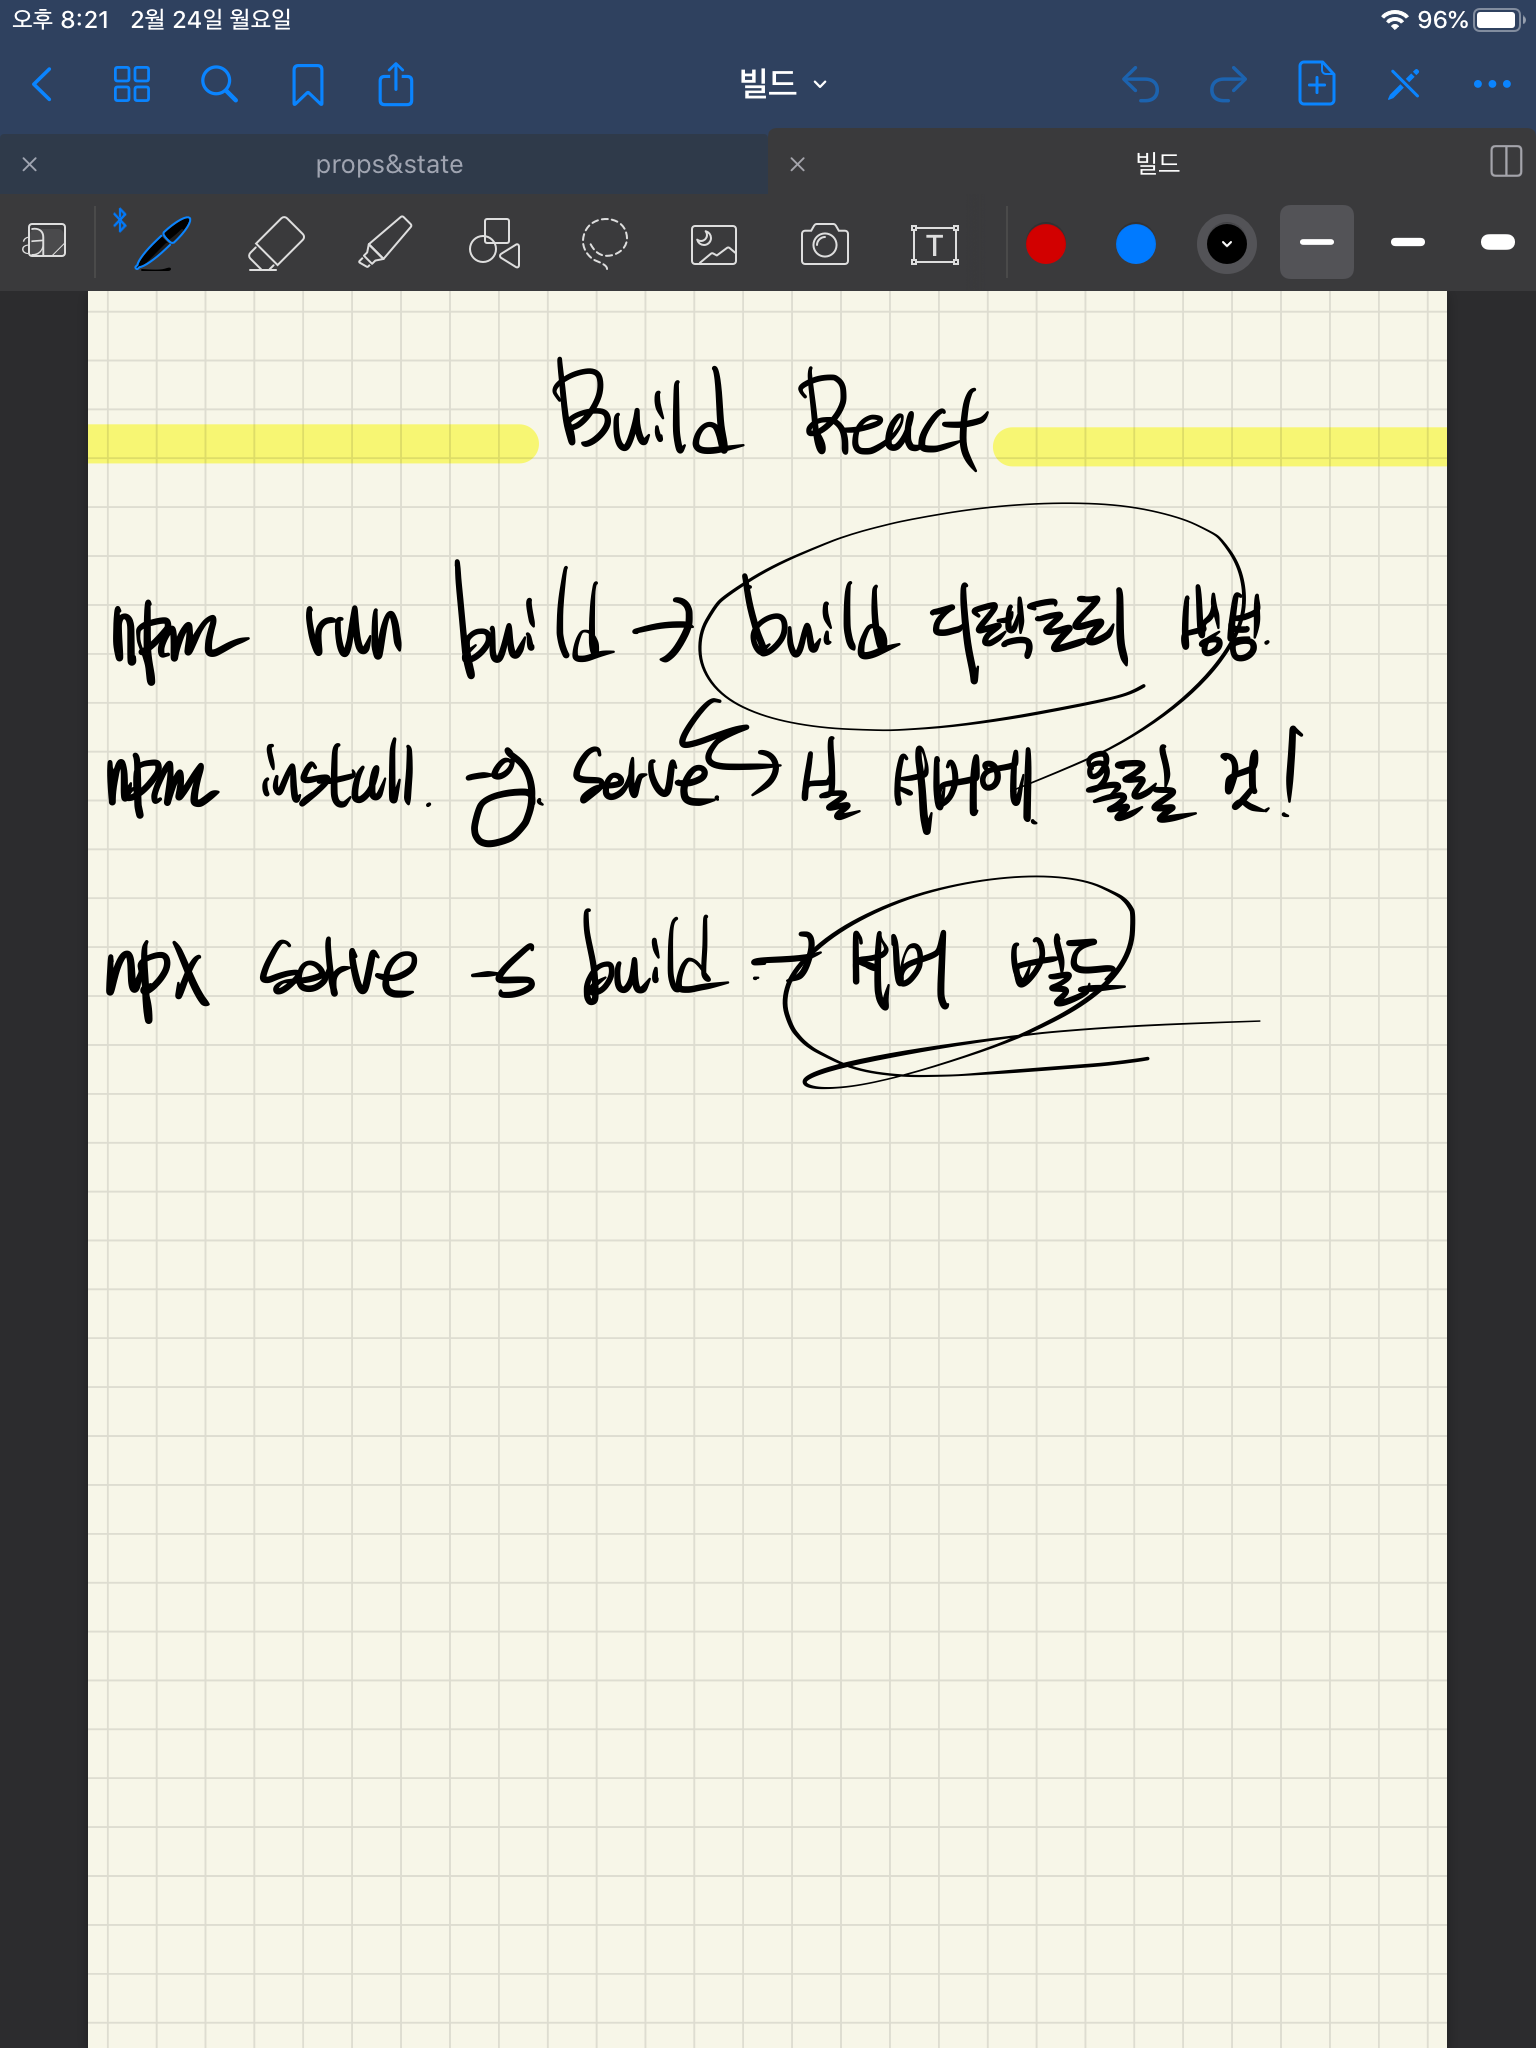 오후 8:21 2월 24일 월요일 96%
빌드
props&state 빌드
T
Build React
npm run build → build 디렉토리 생성.
npm install -g serve → 실 서버에 올릴 것!
npx serve -s build → 서버 빌드